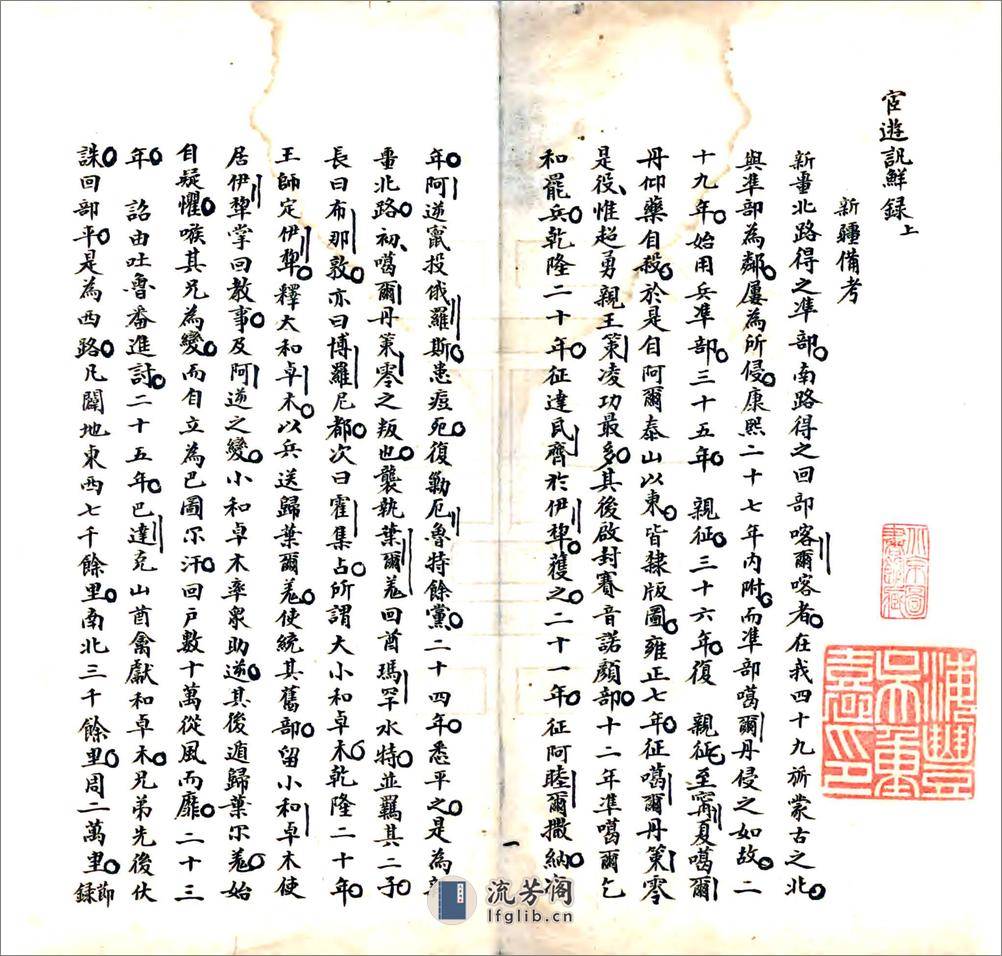 宦遊記鮮録上
新疆備考
新疆北路得之凖部南路得之回部喀爾喀者在我四十九旂蒙古之北
與凖部為鄰屢為所侵康熙二十七年内附而凖部噶爾丹侵之如故二
十九年始用兵凖部三十五年 親征三十六年復 親征至寧夏噶爾
丹仰藥自殺於是自阿爾泰山以東皆隸版圖雍正七年征噶爾丹策零
是役惟超勇親王策凌功最多其後啟封賽音諾顏部十二年凖噶爾乞
和罷兵乾隆二十年征達瓦齊於伊犂獲之二十一年征阿睦爾撒納
年阿逆竄投俄羅斯患痘死復勦厄魯特餘黨二十四年悉平之是為
疆北路初噶爾丹策零之叛也襲執葉爾羌回酋瑪罕木特並羈其二子
長曰布那敦亦曰博羅尼都次曰霍集占所謂大小和卓木乾隆二十年
王師定伊犂釋大和卓木以兵送歸葉爾羌使統其舊部留小和卓木使
居伊犂掌回教事及阿逆之變小和卓木率衆助逆其後遁歸葉尔羌始
自疑懼嗾其兄為變而自立為巴圖尔汗回户數十萬從風而靡二十三
年 詔由吐魯番進討二十五年巴達克山酋禽獻和卓木兄弟先後伏
誅回部平是為西路凡闢地東西七千餘里南北三千餘里周二萬里節録
一
流芳阁
lfglib.cn